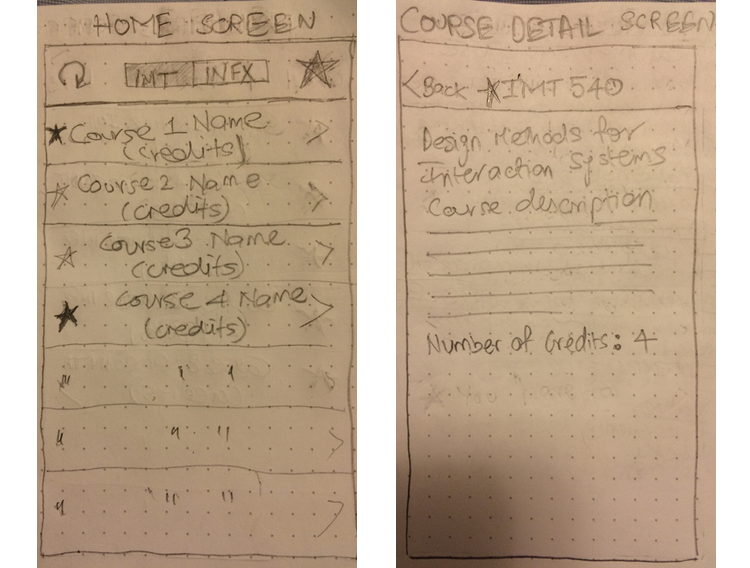 HOME SCREEN
IMT INFX
Course 1 Name
(credits)
Course 2 Name
(credits)
Course3 Name
(credits)
Course 4 Name
(credits)
" " "
" " "
" " "
COURSE DETAIL SCREEN
<Back IMT 540
Design Methods for
Interaction Systems
Course description
Number of Credits: 4